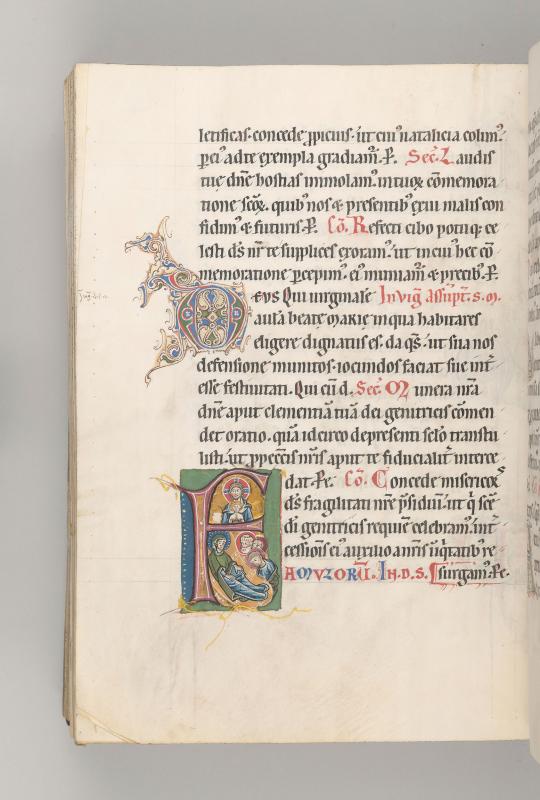 letificas. concede ꝓpicius. ut cuiꝰ natalicia colimꝰ.
ꝑ eiꝰ ad te exempla gradiam̅. P̲. Sec̅. Laudis
tue dn̅e hostias immolamꝰ. in tuoꝝ co̅memora
tione sc̅oꝝ. quibꝰ nos & presentibꝰ exui malis con
fidimꝰ & futuris. P̲. Co̅. Refecti cibo potuq; ce
lesti d̅s nr̅ te supplices exoram̅. ut in cuiꝰ hec co̅
memoratione ꝑcepimꝰ. eiꝰ muniam̅ & precibꝰ. P̲.
Deus Qui uirginale In uig̅ Assu̅pt̅. S. M.
aula̅ beate marie in qua habitares
eligere dignatus es. da qs̅. ut sua nos
defensione munitos. iocundos faciat sue int̅
esse festiuitati. Qui cu̅ d. Sec̅. Munera nr̅a
dn̅e aput clementia̅ tua̅ dei genitricis co̅men
det oratio. qua̅ idcirco de presenti sc̅lo transtu
listi. ut ꝓ peccatis nr̅is aput te fiducialit̅ interce
dat. Pe. Co̅. Concede misericoꝝs
d̅s fragilitati nr̅e p̅sidiu̅. ut q̅ sc̅e
di̅ genitricis requie̅ celebram̅. int̅
cessionis eiꝰ auxilio a nr̅is iniq̅tatibꝰ re
Famuloru̅. In. D. S. surgam̅. Pe.